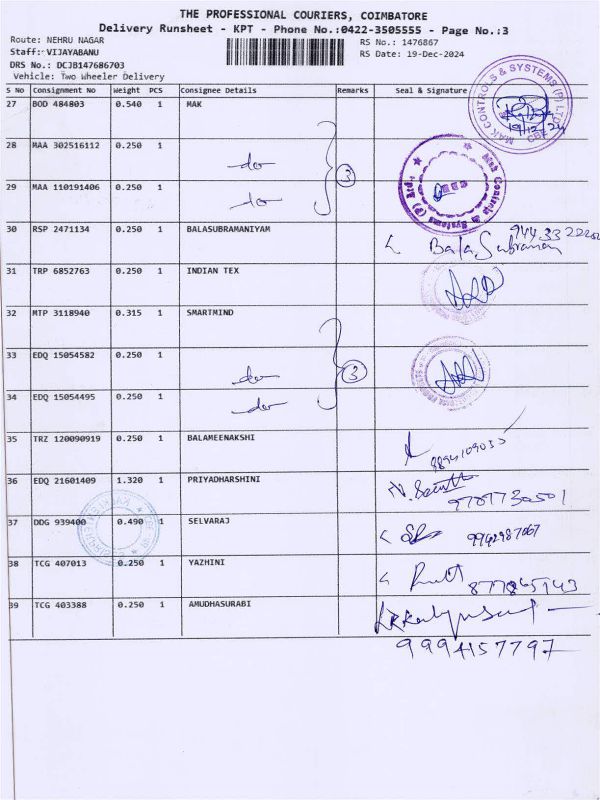 THE PROFESSIONAL COURIERS, COIMBATORE
Delivery Runsheet - KPT - Phone No.:0422-3505555 - Page No.:3
Route: NEHRU NAGAR
RS No.: 1476867
Staff: VIJAYABANU
RS Date: 19-Dec-2024
DRS No.: DCJB147686703
Vehicle: Two Wheeler Delivery
S No Consignment No Weight PCS Consignee Details Remarks Seal & Signature
27 BOD 484803 0.540 1 MAK
MAK CONTROLS & SYSTEMS (P) LTD
CBE
19/12/24
28 MAA 302516112 0.250 1 do
3
Mak Controls & Systems (P) Ltd.
29 MAA 110191406 0.250 1 do
30 RSP 2471134 0.250 1 BALASUBRAMANIYAM
Bala Subramani
31 TRP 6852763 0.250 1 INDIAN TEX
32 MTP 3118940 0.315 1 SMARTMIND
33 EDQ 15054582 0.250 1 do
3
34 EDQ 15054495 0.250 1 do
35 TRZ 120090919 0.250 1 BALAMEENAKSHI
36 EDQ 21601409 1.320 1 PRIYADHARSHINI
9787730501
37 DDG 939400 0.490 1 SELVARAJ
38 TCG 407013 0.250 1 YAZHINI
39 TCG 403388 0.250 1 AMUDHASURABI
9994157797